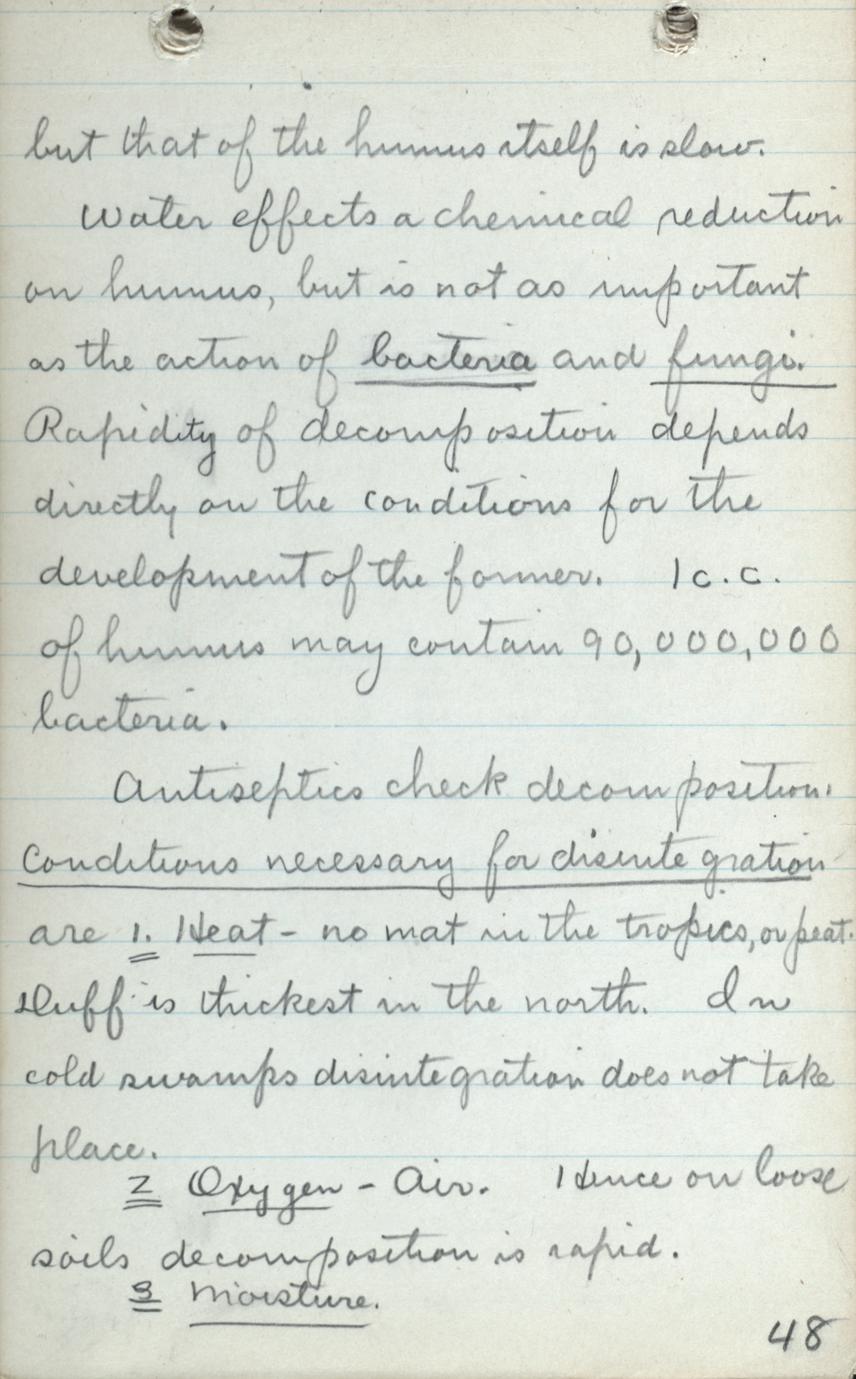 but that of the humus itself is slow.
Water effects a chemical reduction
on humus, but is not as important
as the action of bacteria and fungi.
Rapidity of decomposition depends
directly on the conditions for the
development of the former. 1 c.c.
of humus may contain 90,000,000
bacteria.
Antiseptics check decomposition.
Conditions necessary for disintegration
are 1. Heat - no mat in the tropics, or peat.
Duff is thickest in the north. In
cold swamps disintegration does not take
place.
2 Oxygen - Air. Hence on loose
soils decomposition is rapid.
3 Moisture.
48